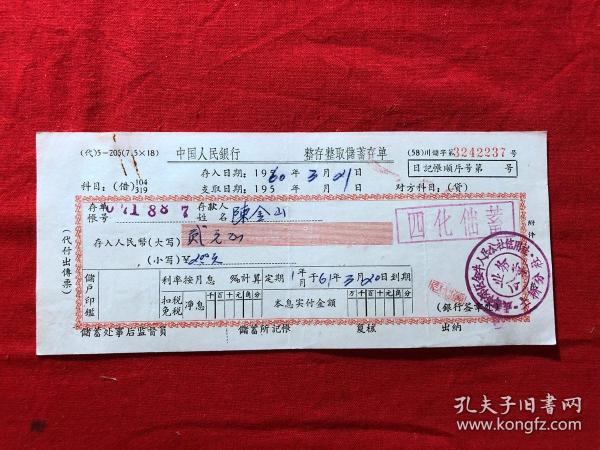 (代)5-205(7.5×18) 中国人民銀行 整存整取儲蓄存单 (58)川儲字第3242237号
存入日期：1960年3月21日 日記帳順序号第 号
科目：(借)104 319 支取日期：195 年 月 日 对方科目：(貸)
存单帳号 01188 7 存款人姓名 陳金山
四化儲蓄
存入人民幣(大写) 貳元正
(小写)¥2.00元
儲戶印鑑 利率按月息 計算定期1年 月于61年3月20日到期
扣税免税 净息 千百十元角分 本息实付金額 万千百十元角分
业务公章
(銀行签章
(代付出傳票)
附件
儲蓄处事后监督員 儲蓄所記帳 复核 出納
孔夫子旧书网
www.kongfz.com